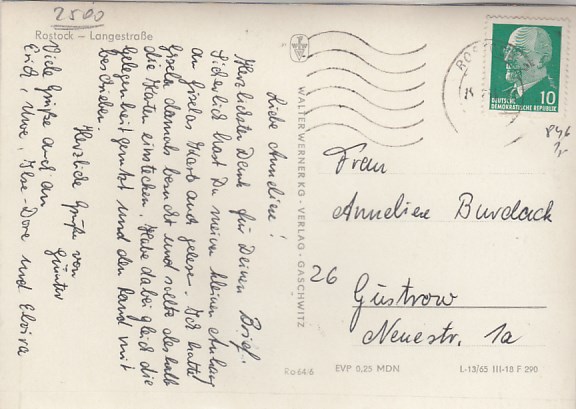 2500
Rostock – Langestraße
Liebe Annelien!
Herzlichsten Dank für Deinen Brief.
Sicherlich hast Du meinen kleinen Anhang
an Giselas Karte auch gelesen. Ich hatte
Gisela damals besucht und sollte deshalb
die Karten einstecken. Habe dabei gleich die
Gelegenheit genutzt und den Rand mit
beschrieben.
Herzliche Grüße von
Günter
Viele Grüße auch an
Erich, Uwe, Ilse-Dore und Elvira
WALTER WERNER KG · VERLAG · GASCHWITZ
ROSTOCK
DEUTSCHE
DEMOKRATISCHE REPUBLIK
10
Frau
Anneliese Burdack
26 Güstrow
Neuestr. 1a
Ro 64-6
EVP 0,25 MDN
L-13/65 III-18 F 290